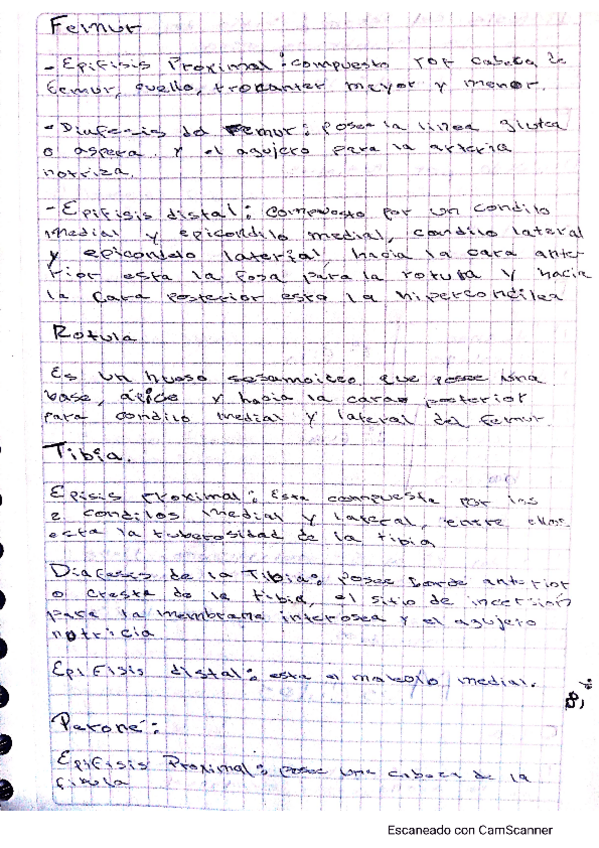 Femur
- Epifisis Proximal: compuesto por cabeza de
femur, cuello, trocanter mayor y menor.
- Diafecis del Femur: posee la linea glutea
o aspera y el agujero para la arteria
notriza.
- Epifisis distal: compuesto por un condilo
medial y epicondilo medial, condilo lateral
y epicondilo laterial, hacia la cara ante-
rior esta la fosa para la rotula y hacia
la cara posterior esta la
Rotula
Es un hueso que posee una
base, ápice y hacia la cara posterior
para condilo medial y lateral del femur.
Tibia.
Episis Proximal: Esta compuesta por los
2 condilos medial y lateral, entre ellos
esta la tuberosidad de la tibia
Diafeses de la Tibia: posee borde anterior
o cresta de la tibia, el sitio de incersion
para la membrana interosea y el agujero
notricia
Epifisis distal: esta el maleolo medial.
Peroné:
Epifisis Proximal: posee una cabeza de la
fibula
Escaneado con CamScanner